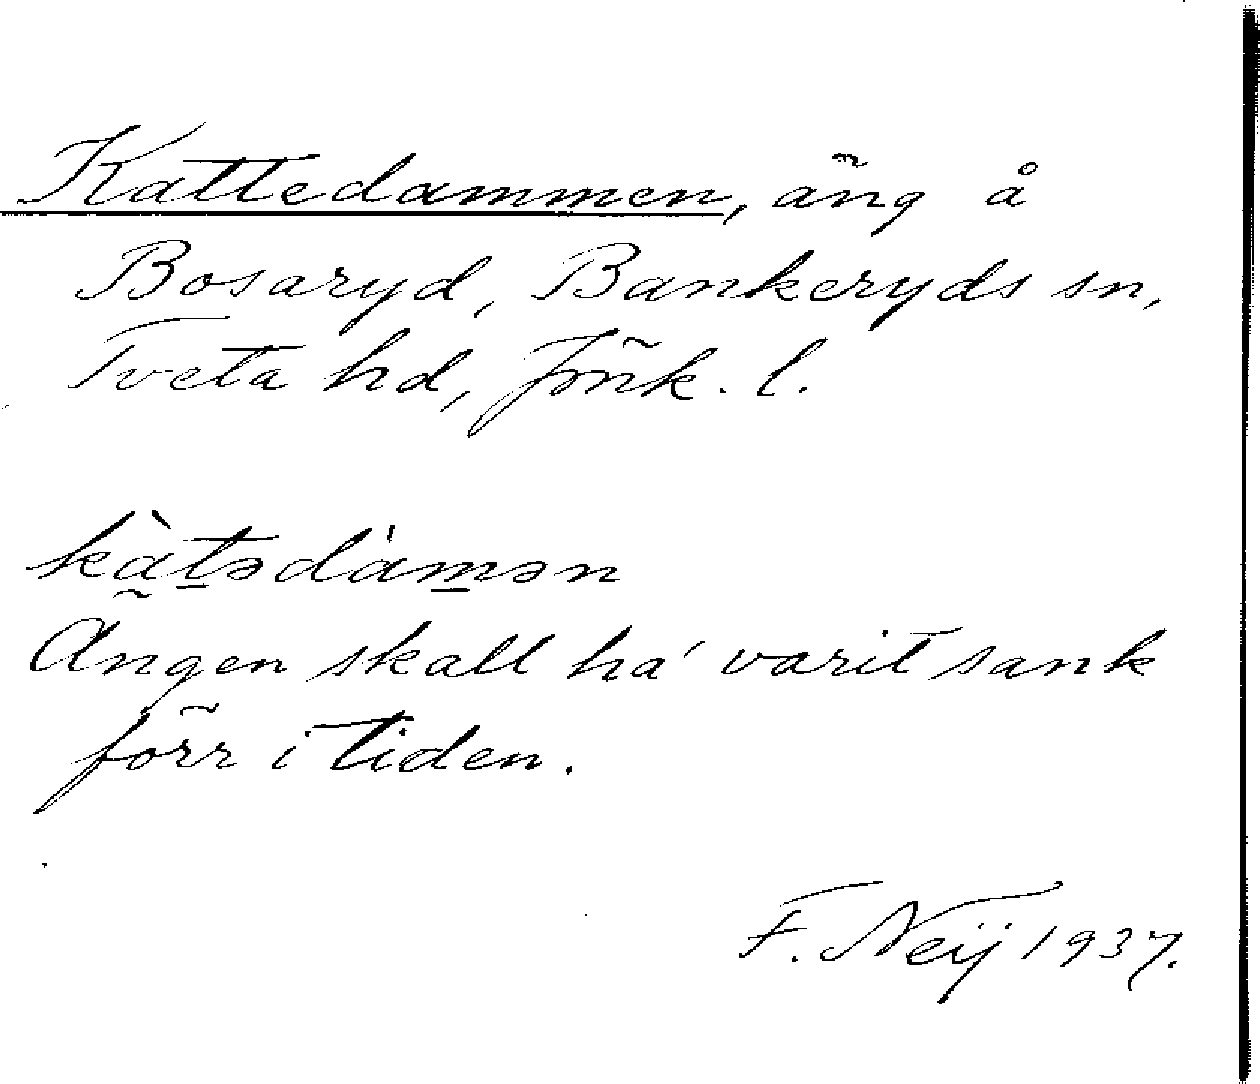 Kattedammen, äng å
Bosaryd, Bankeryds sn,
Tveta hd, Jönk. l.
kàt̲ədàm̲ən
Ängen skall ha' varit sank
förr i tiden.
F. Neij 1937.